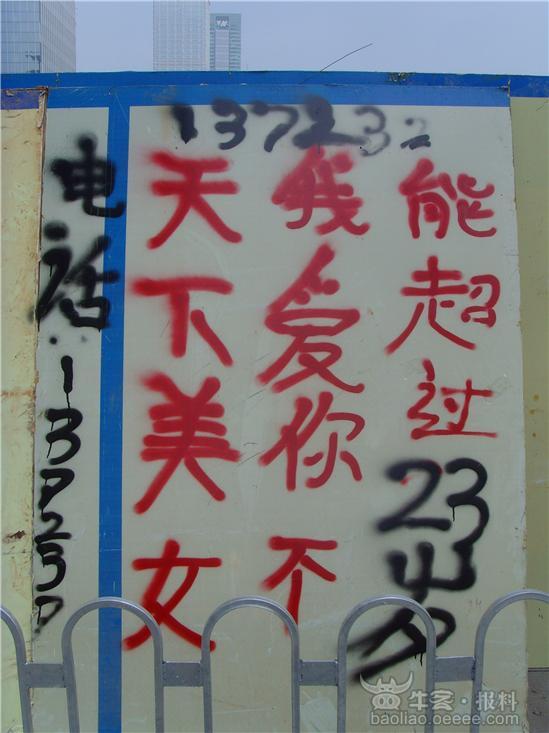 137232
电话:137237
天下美女
我爱你不
能超过
23岁
牛客·报料
baoliao.oeeee.com